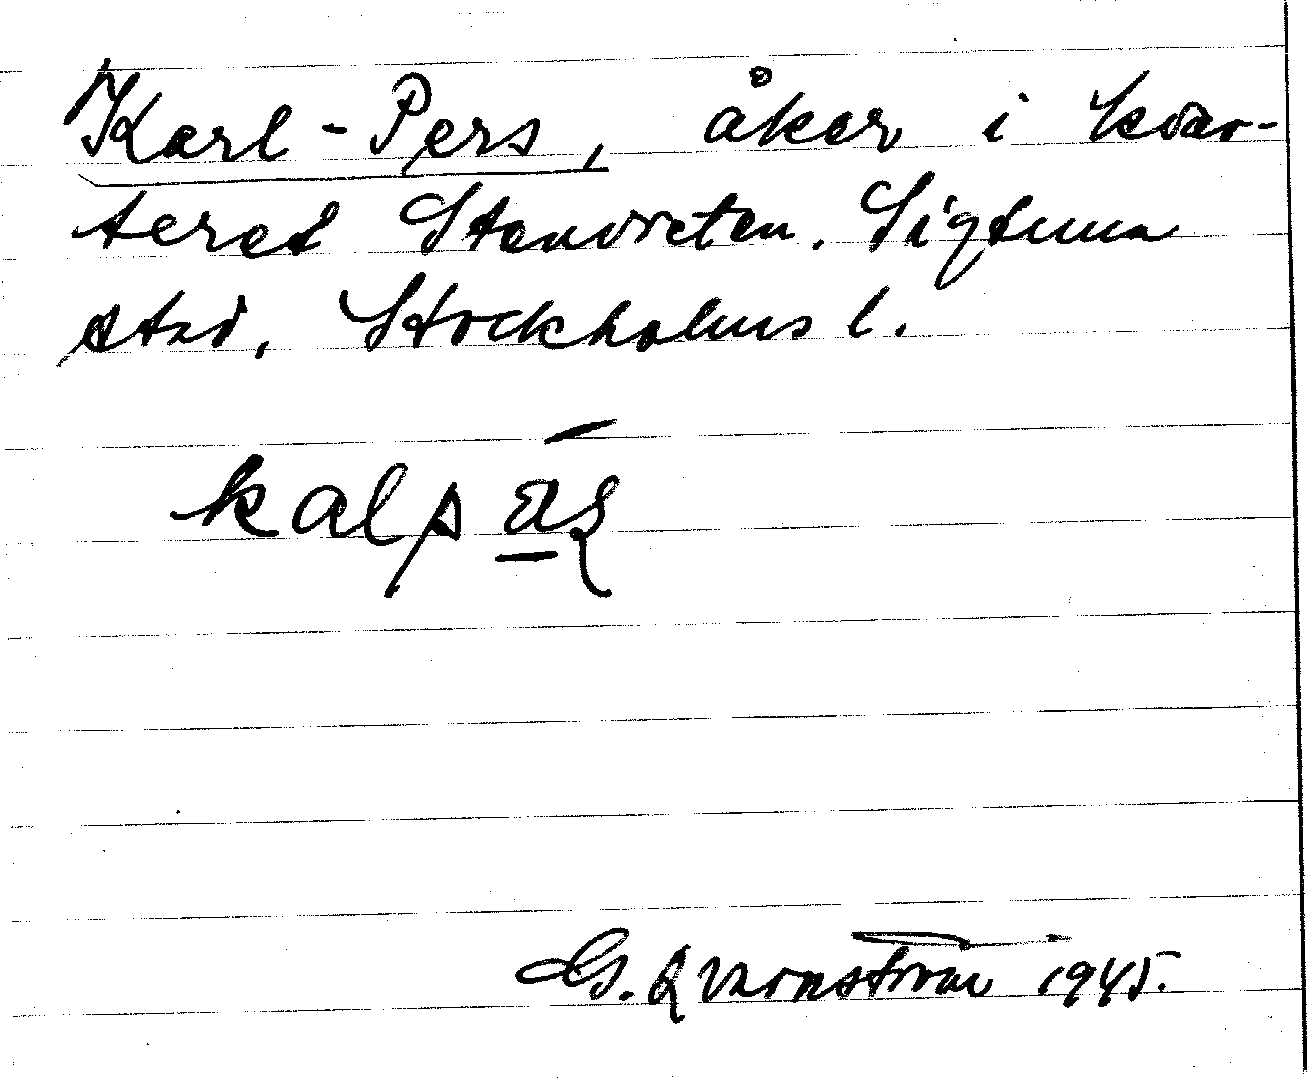 Karl-Pers, åker i kvar-
teret Standreten. Sigtuna
stad, Stockholms l.
kalpäʂ
G. Qvarnström 1945.